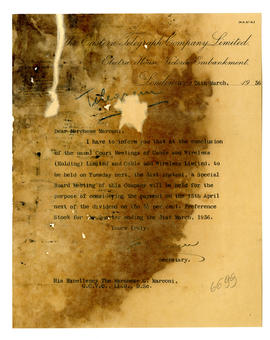 The Eastern Telegraph Company, Limited.
Electra House, Victoria Embankment,
London, 25th March, 1936
Telegram
Dear Marchese Marconi,
I have to inform you that at the conclusion
of the usual Court Meetings of Cable and Wireless
(Holding) Limited and Cable and Wireless Limited, to
be held on Tuesday next, the 31st instant, a Special
Board Meeting of this Company will be held for the
purpose of considering the payment on the 15th April
next of the dividend on the 3½ per cent. Preference
Stock for the quarter ending the 31st March, 1936.
Yours truly,
Secretary.
His Excellency The Marchese G. Marconi,
G.C.V.O., LL.D., D.Sc.
6699